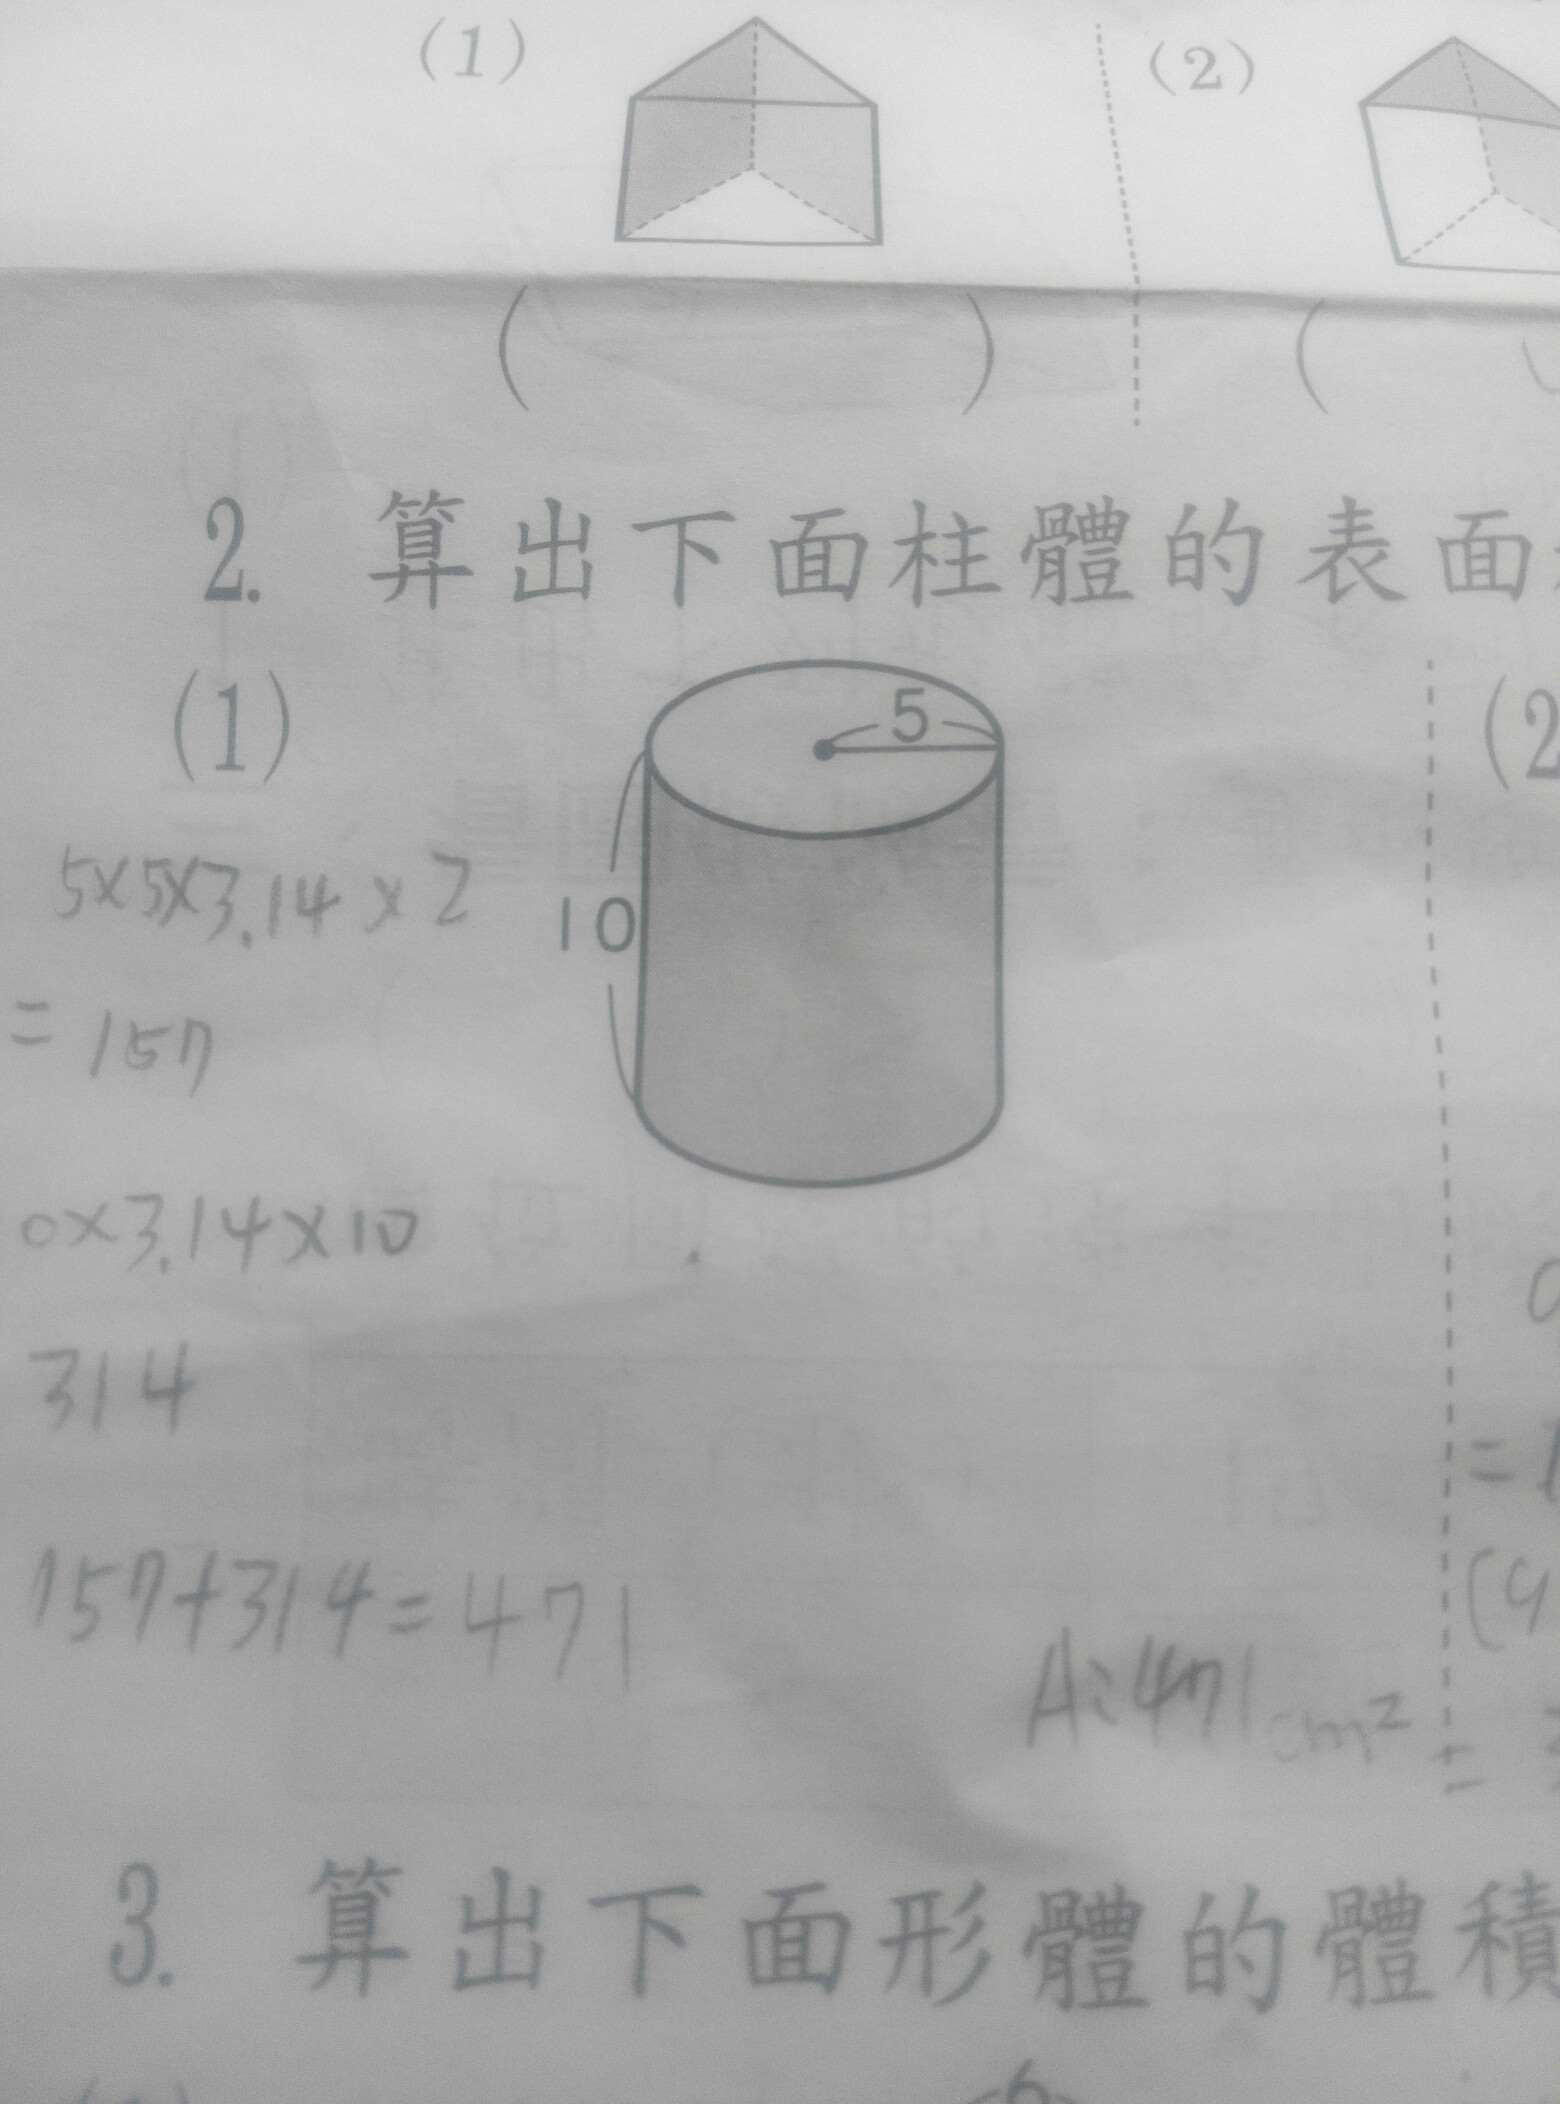 (1) (2)
( ) (
2. 算出下面柱體的表面
(1) 5 (2
5×5×3.14×2
10
= 157
0×3.14×10
314
157+314=471
A:471cm²
3. 算出下面形體的體積
6